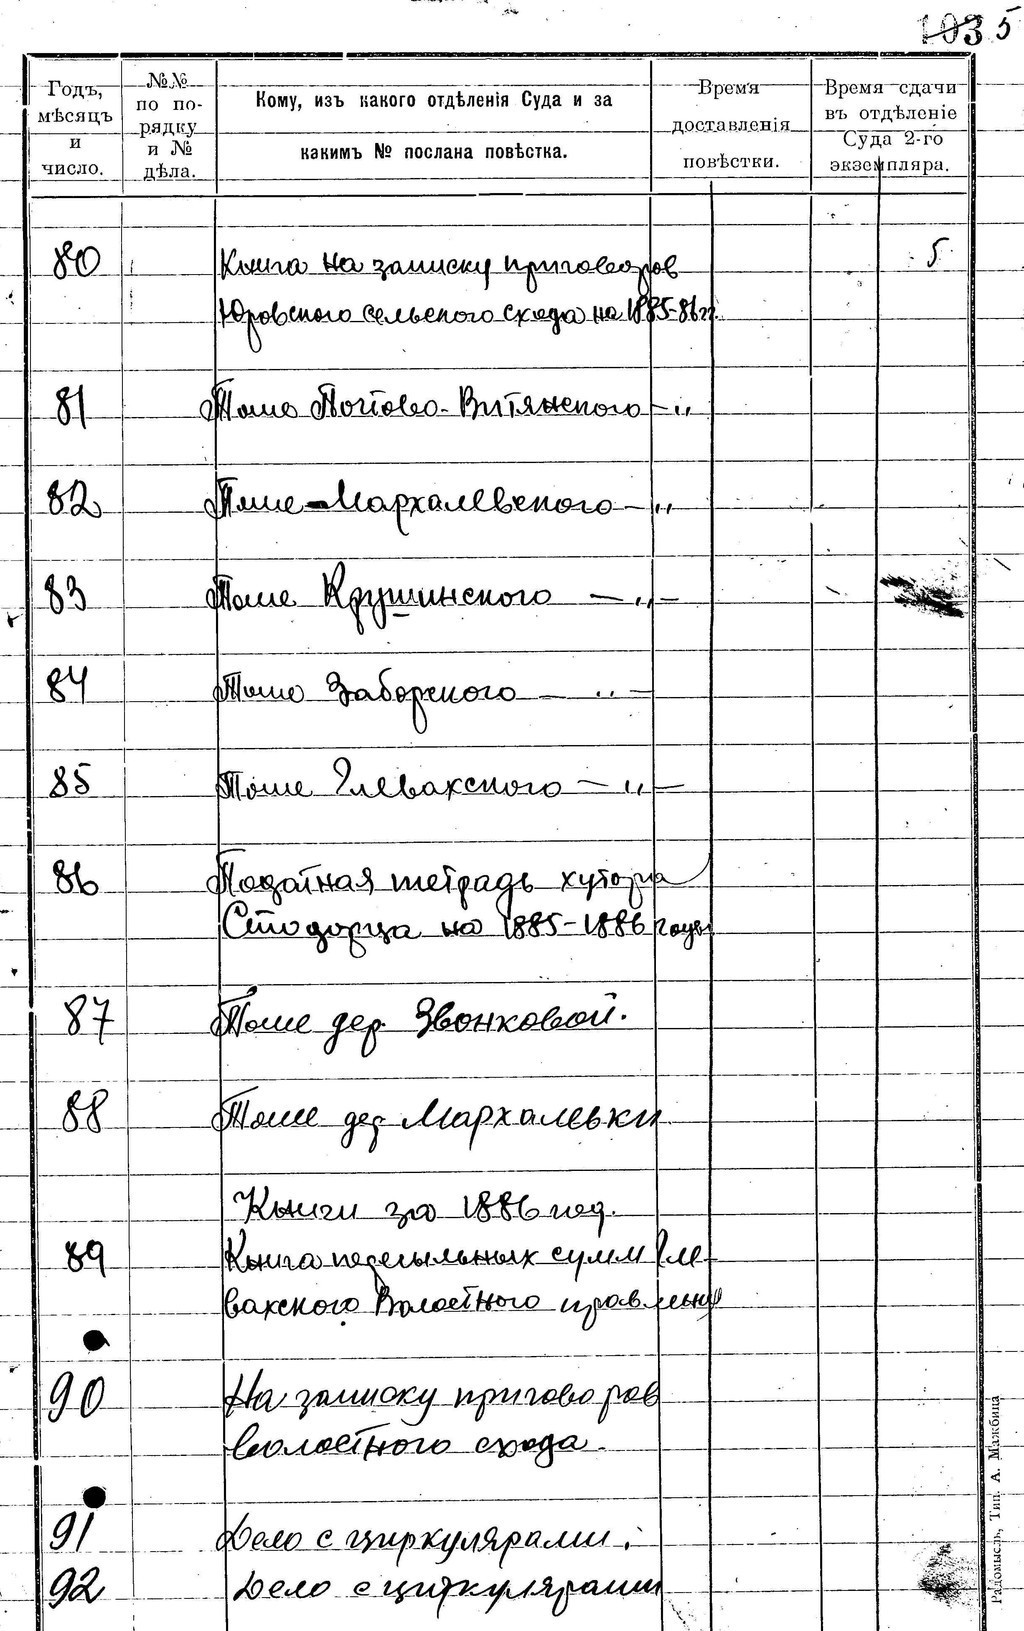 103 5
Годъ, мѣсяцъ и число.
№№ по по-рядку и № дѣла.
Кому, изъ какого отдѣленія Суда и за
какимъ № послана повѣстка.
Время доставленія повѣстки.
Время сдачи въ отдѣленіе Суда 2-го экземпляра.
80 Книга на записку приговоров 5
Юровского сельского схода на 1885-86 гг.
81 Тоже Почтово-Витянского — "
82 Тоже Мархалевского — "
83 Тоже Крушинского — " —
84 Тоже Заборского — " —
85 Тоже Глевахского — " —
86 Податная тетрадь хутора
на 1885-1886 годы
87 Тоже дер. Звонковой.
88 Тоже дер Мархалевки
Книги за 1886 год.
89 Книга пересыльных сумм Гле-
вахского Волостного правления
90 На записку приговоров
волостного схода
91 Дело с циркулярами.
92 Дело с циркулярами
Радомысль, Тип. А. Мажбица